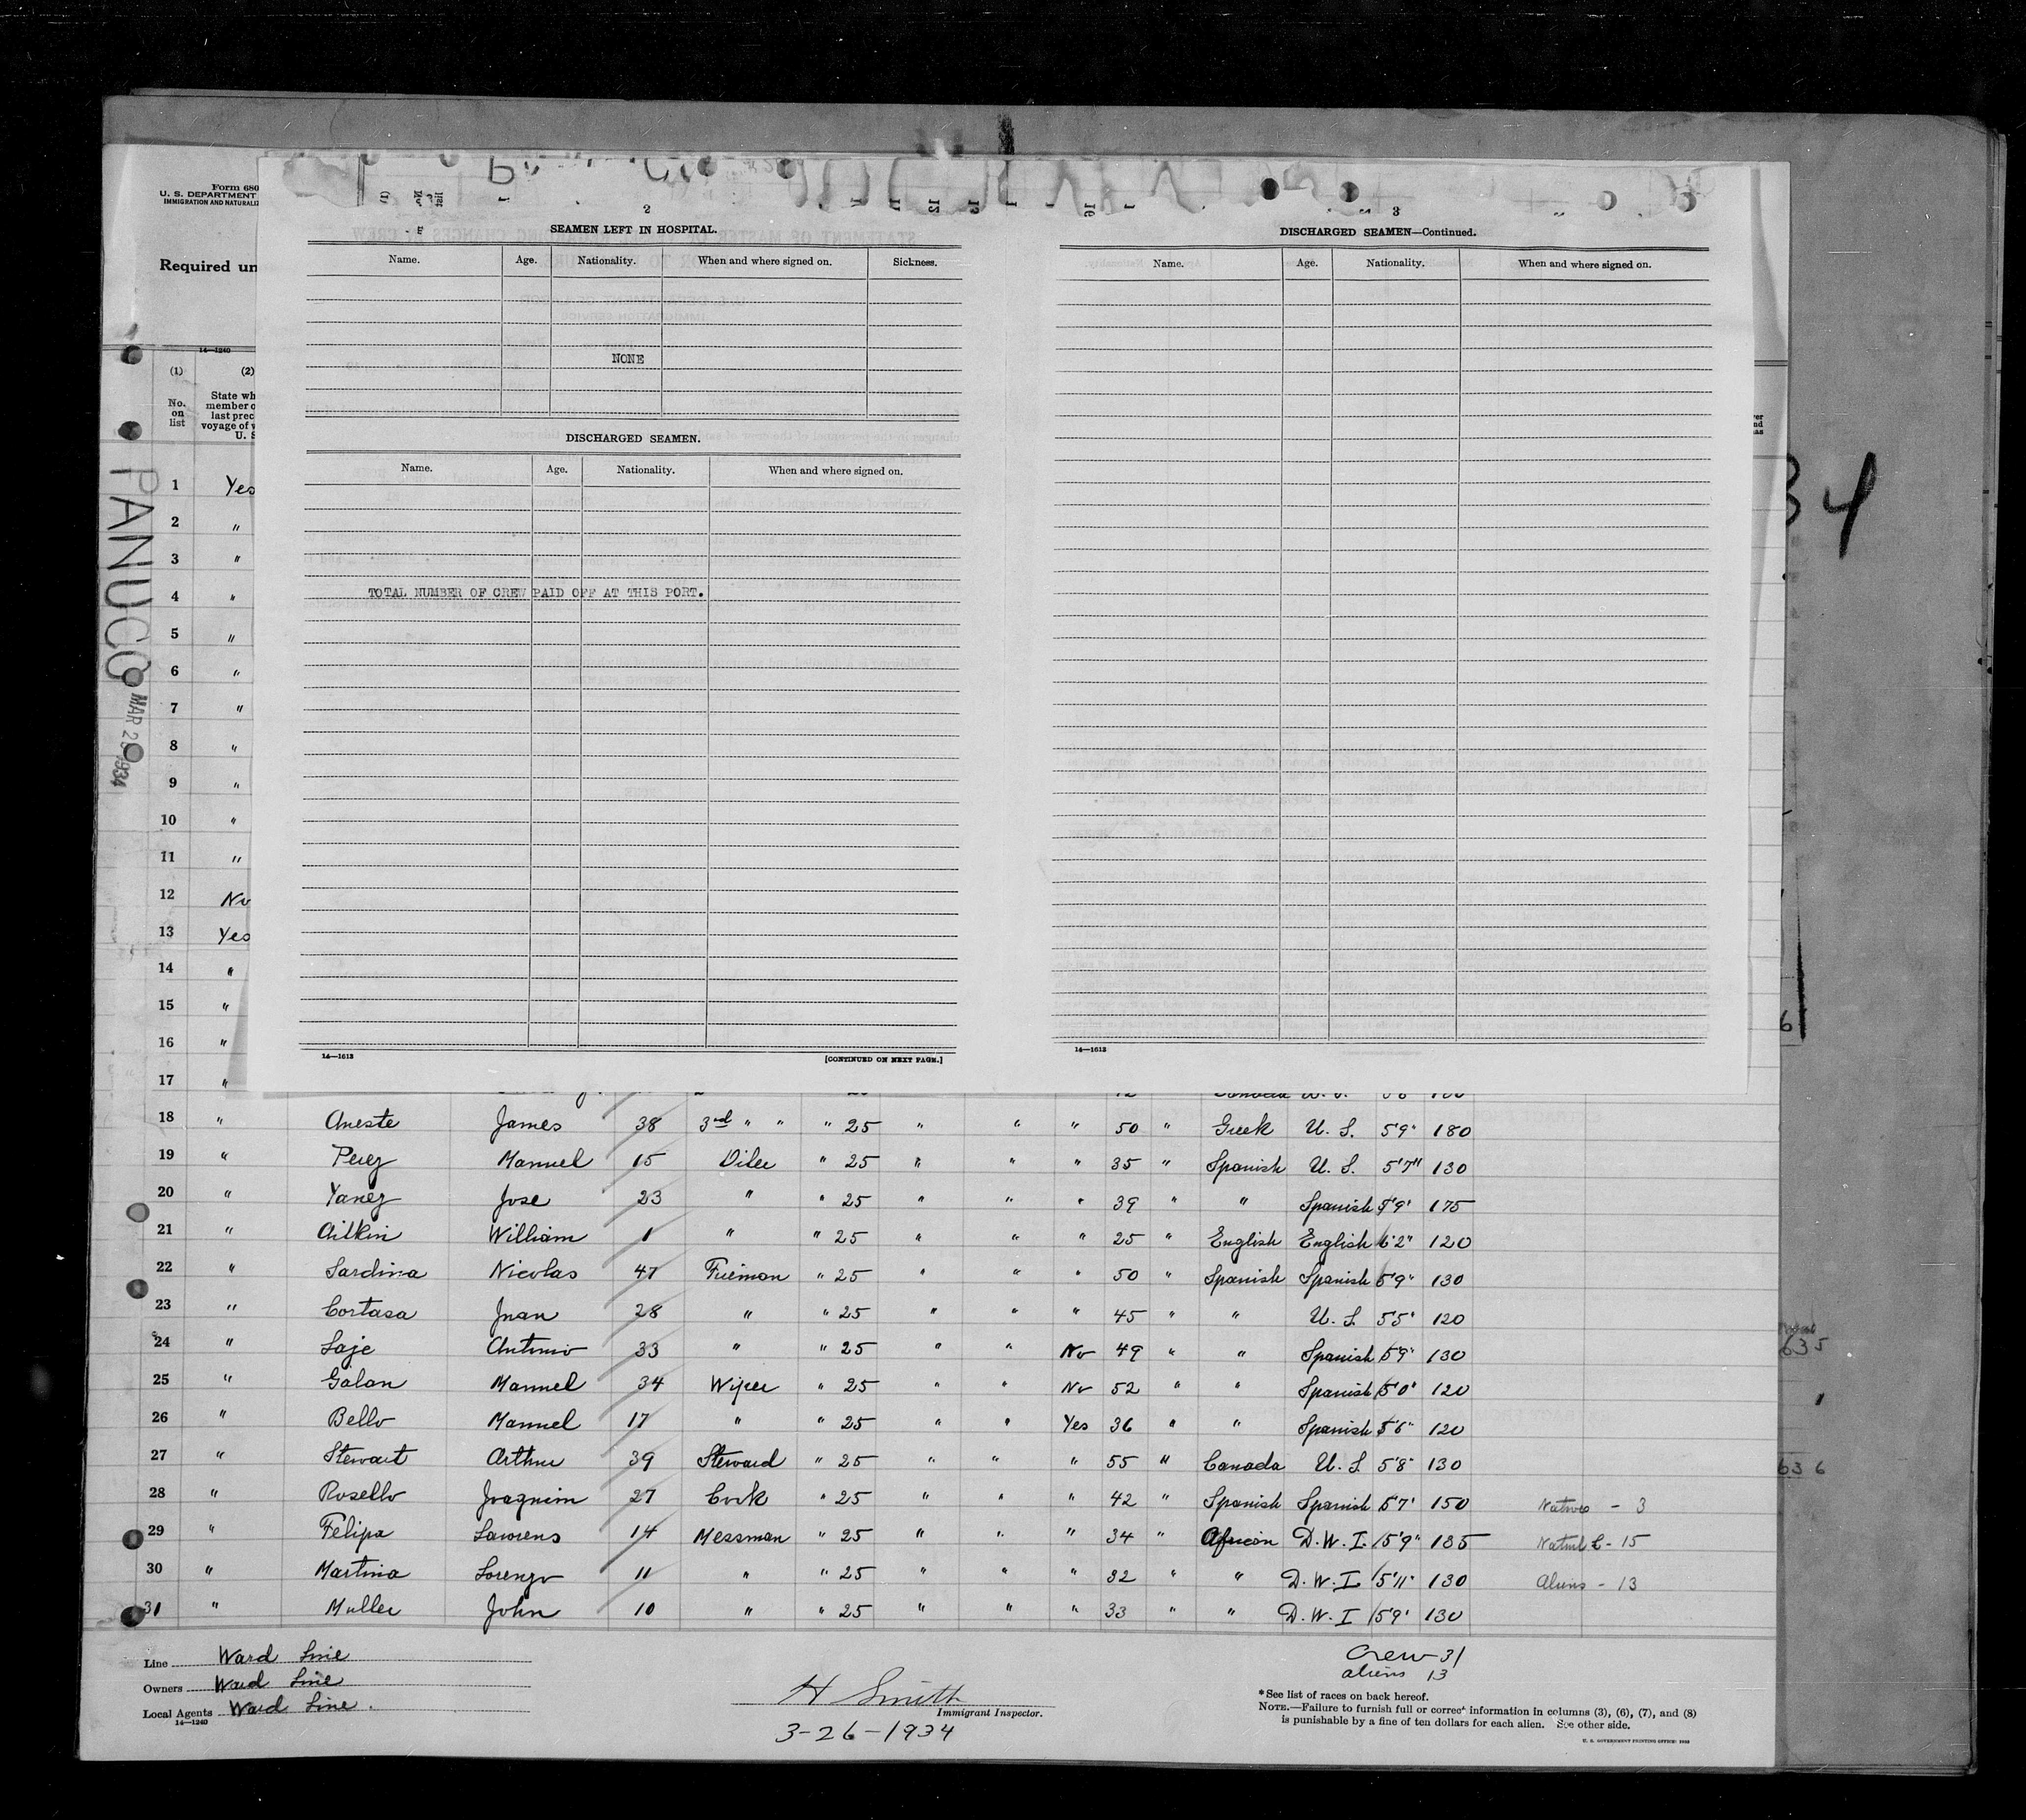 Form 680
U. S. DEPARTMENT
IMMIGRATION AND NATURALIZ
Required un
14—1240
(1) (2)
No. on list
State wh
member o
last prec
voyage of v
U. S
PANUCO
MAR 26 1934
1 Yes
2 "
3 "
4 "
5 "
6 "
7 "
8 "
9 "
10 "
11 "
12 No
13 Yes
14 "
15 "
16 "
17 "
2
SEAMEN LEFT IN HOSPITAL.
Name. Age. Nationality. When and where signed on. Sickness.
NONE
DISCHARGED SEAMEN.
Name. Age. Nationality. When and where signed on.
TOTAL NUMBER OF CREW PAID OFF AT THIS PORT.
14—1613 [CONTINUED ON NEXT PAGE.]
3
DISCHARGED SEAMEN—Continued.
Name. Age. Nationality. When and where signed on.
14—1613
34
18 " Aneste James 38 3rd " " " 25 " " " 50 " Greek U. S. 5'9" 180
19 " Perez Manuel 15 Oiler " 25 " " " 35 " Spanish U. S. 5'7" 130
20 " Yanez Jose 23 " " 25 " " " 39 " " Spanish 5'9" 175
21 " Aitkin William 1 " " 25 " " " 25 " English English 6'2" 120
22 " Sardina Nicolas 47 Fireman " 25 " " " 50 " Spanish Spanish 5'9" 130
23 " Cortasa Juan 28 " " 25 " " " 45 " " U. S. 5'5" 120
24 " Saje Antonio 33 " " 25 " " No 49 " " Spanish 5'9" 130
25 " Galan Manuel 34 Wiper " 25 " " No 52 " " Spanish 5'0" 120
26 " Bello Manuel 17 " " 25 " " Yes 36 " " Spanish 5'6" 120
27 " Stewart Arthur 39 Steward " 25 " " " 55 " Canada U. S. 5'8" 130
28 " Rosello Joaquim 27 Cook " 25 " " " 42 " Spanish Spanish 5'7" 150 Natives - 3
29 " Felipa Lawrens 14 Messman " 25 " " " 34 " African D. W. I. 5'9" 135 Natul C - 15
30 " Martina Lorenzo 11 " " 25 " " " 32 " " D. W. I. 5'11" 130 Aliens - 13
31 " Muller John 10 " " 25 " " " 33 " " D. W. I 5'9" 130
635
1
636
Crew 31
aliens 13
Line Ward Line
Owners Ward Line
Local Agents Ward Line.
14—1240
H Smith
Immigrant Inspector.
3-26-1934
*See list of races on back hereof.
NOTE.—Failure to furnish full or correct information in columns (3), (6), (7), and (8)
is punishable by a fine of ten dollars for each alien. See other side.
U. S. GOVERNMENT PRINTING OFFICE: 1933